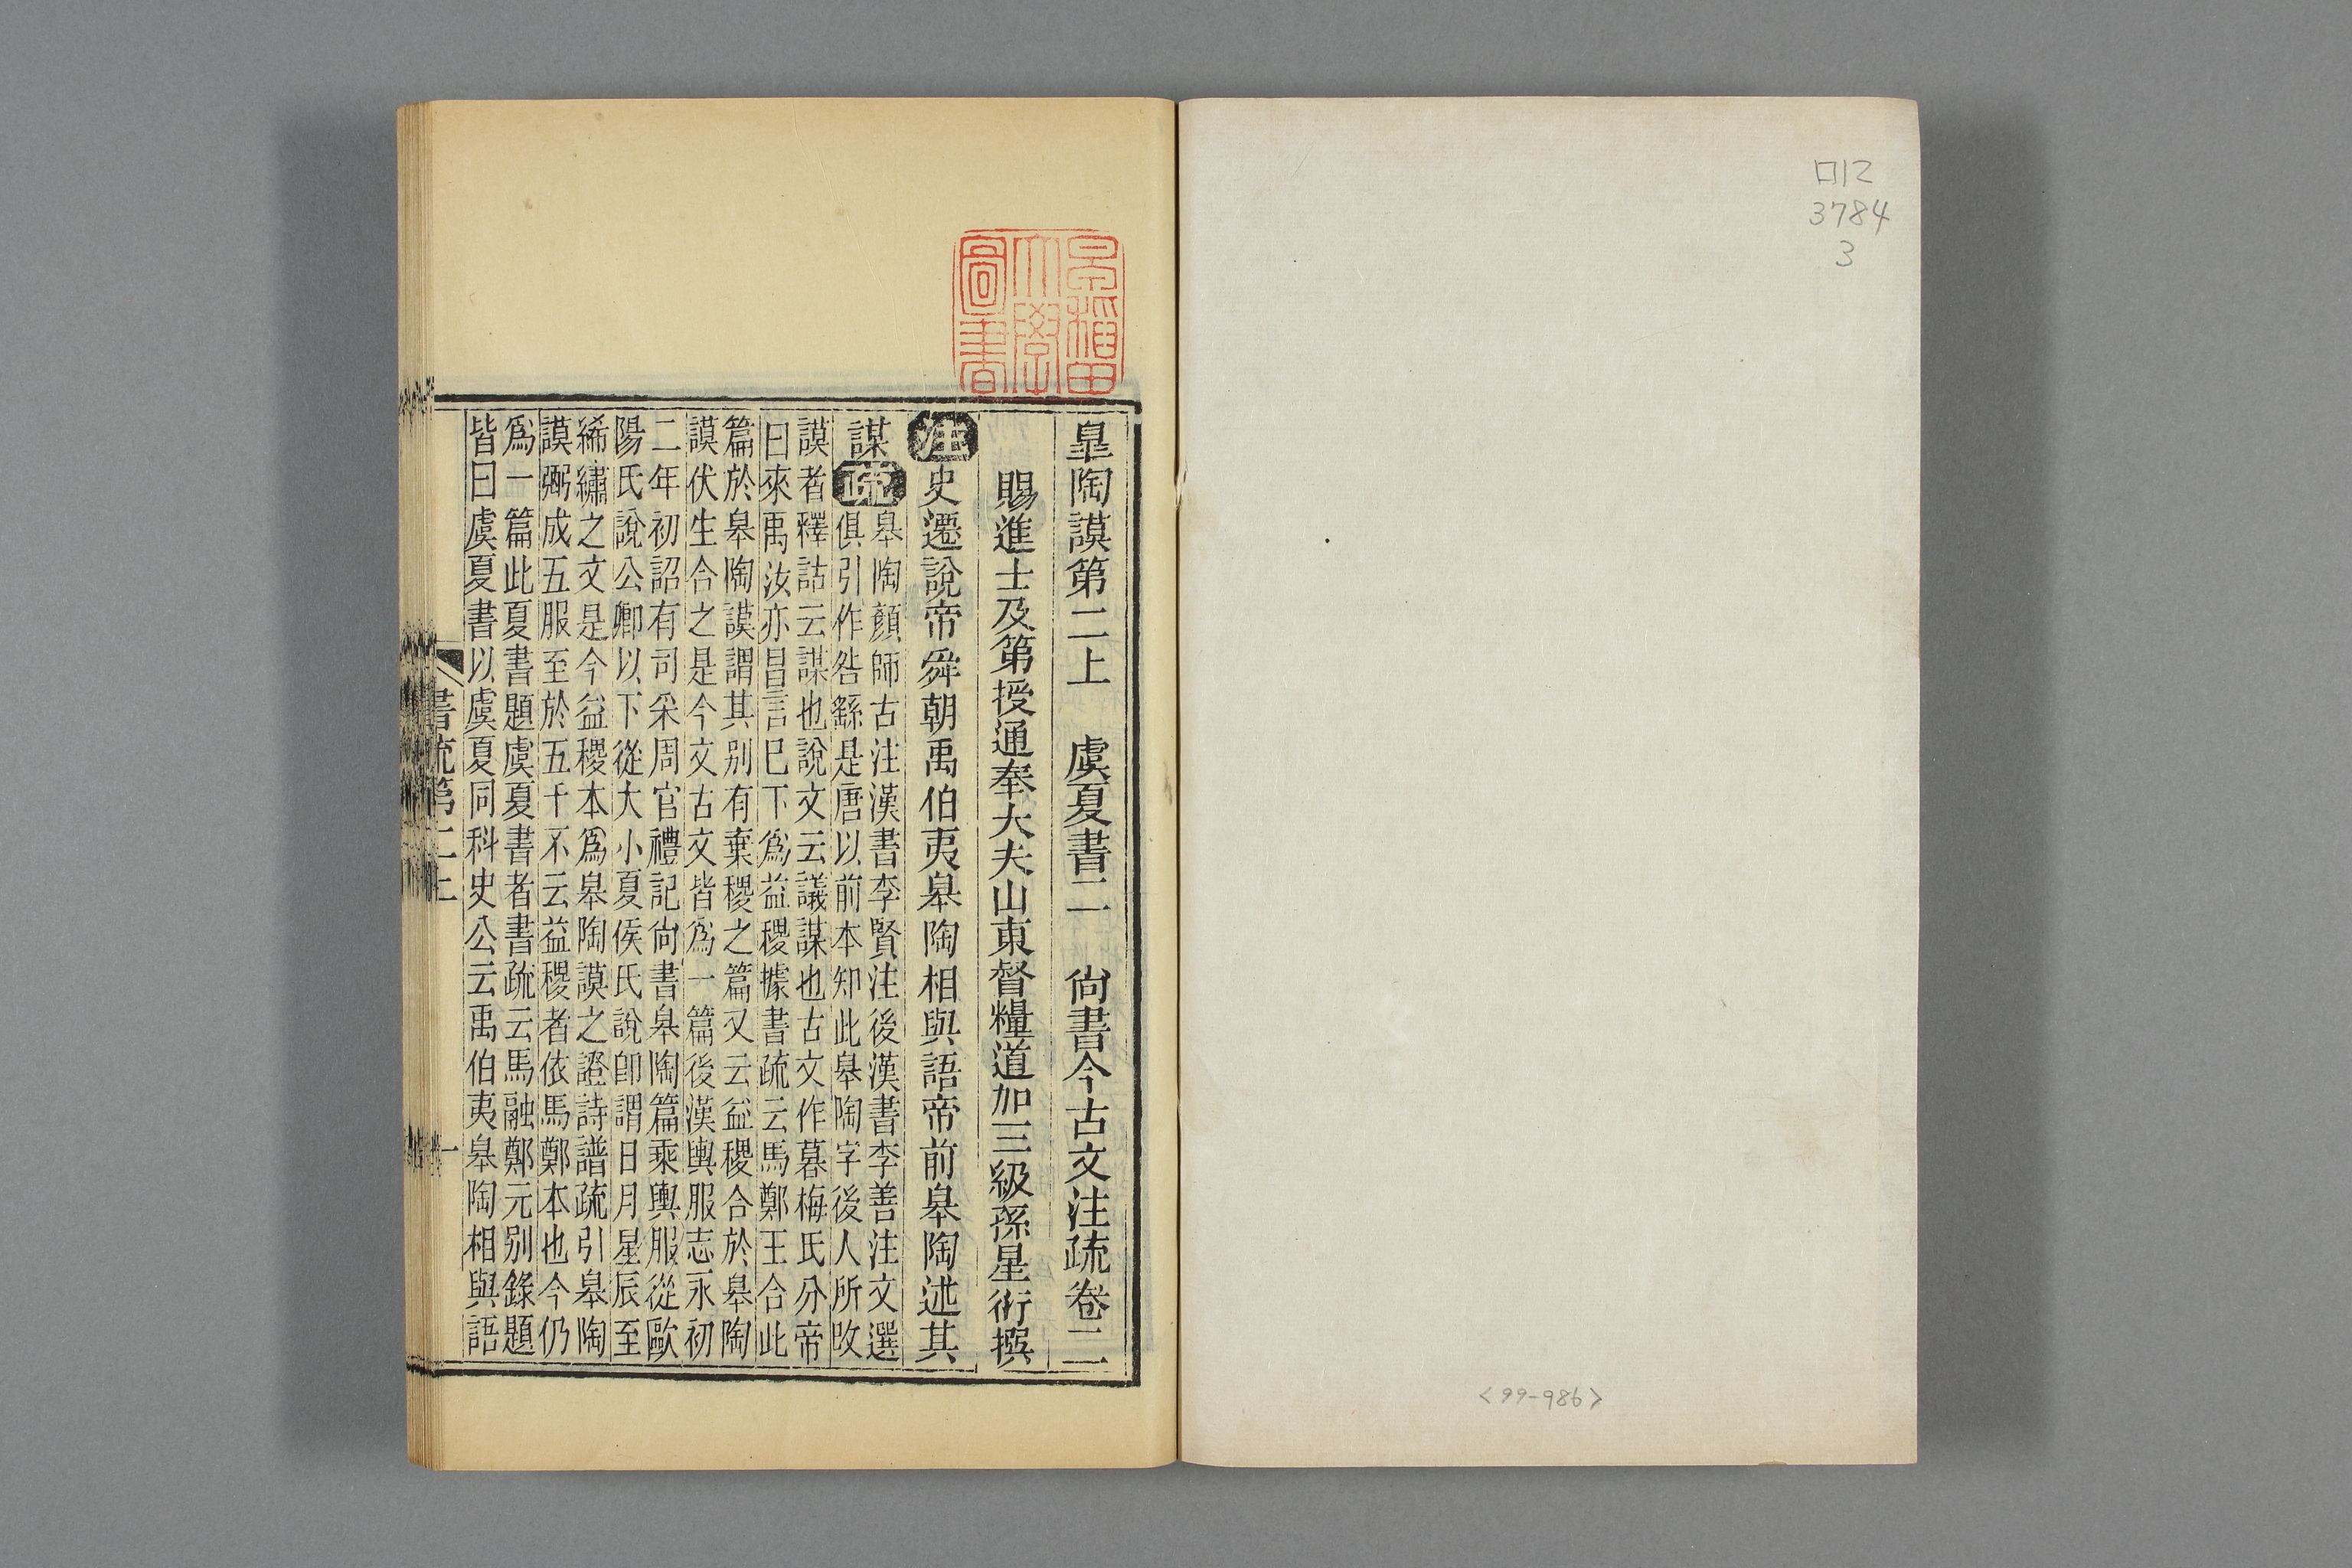 口12
3784
3
<99-986>
早稲田
大學
圖書
皐陶謨第二上 虞夏書二 尙書今古文注疏卷二
賜進士及第授通奉大夫山東督糧道加三級孫星衍撰
注史遷說帝舜朝禹伯夷皋陶相與語帝前皋陶述其
謀疏
皋陶顏師古注漢書李賢注後漢書李善注文選
俱引作咎繇是唐以前本知此皋陶字後人所改
謨者釋詁云謀也說文云議謀也古文作暮梅氏分帝
曰來禹汝亦昌言巳下爲益稷據書疏云馬鄭王合此
篇於皋陶謨謂其别有棄稷之篇又云益稷合於皋陶
謨伏生合之是今文古文皆爲一篇後漢輿服志永初
二年初詔有司采周官禮記尙書皋陶篇乘輿服從歐
陽氏說公卿以下從大小夏侯氏說卽謂日月星辰至
絺繡之文是今益稷本爲皋陶謨之證詩譜疏引皋陶
謨弼成五服至於五千不云益稷者依馬鄭本也今仍
爲一篇此夏書題虞夏書者書疏云馬融鄭元别錄題
皆曰虞夏書以虞夏同科史公云禹伯夷皋陶相與語
書疏第二上
一